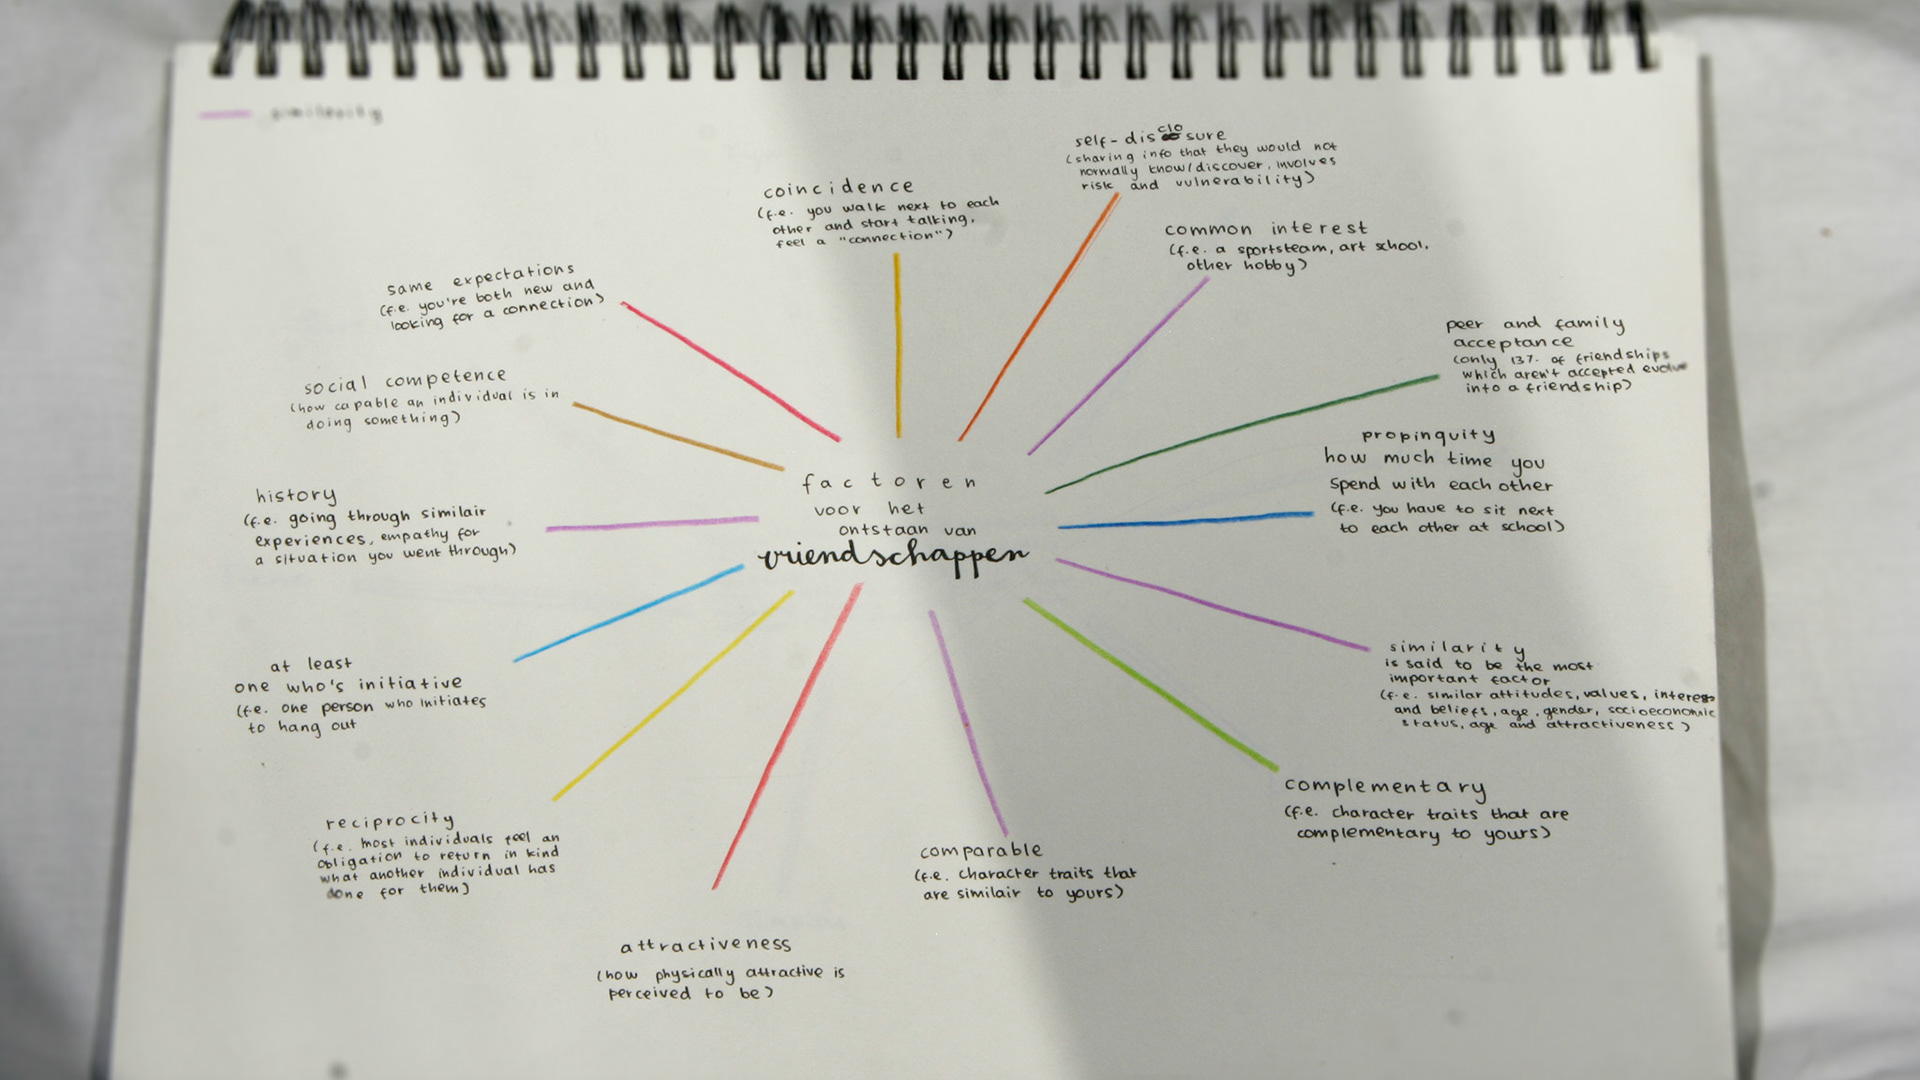 similarity
self-disclosure
(sharing info that they would not
normally know/discover, involves
risk and vulnerability)
coincidence
(f.e. you walk next to each
other and start talking,
feel a "connection")
common interest
(f.e. a sportsteam, art school,
other hobby)
same expectations
(f.e. you're both new and
looking for a connection)
peer and family
acceptance
(only 13% of friendships
which aren't accepted evolve
into a friendship)
social competence
(how capable an individual is in
doing something)
propinquity
how much time you
spend with each other
(f.e. you have to sit next
to each other at school)
factoren
voor het
ontstaan van
vriendschappen
history
(f.e. going through similair
experiences, empathy for
a situation you went through)
similarity
is said to be the most
important factor
(f.e. similar attitudes, values, interess
and beliefs, age, gender, socioeconomic
status, age and attractiveness)
at least
one who's initiative
(f.e. one person who initiates
to hang out
complementary
(f.e. character traits that are
complementary to yours)
reciprocity
(f.e. most individuals feel an
obligation to return in kind
what another individual has
done for them)
comparable
(f.e. character traits that
are similair to yours)
attractiveness
(how physically attractive is
perceived to be)